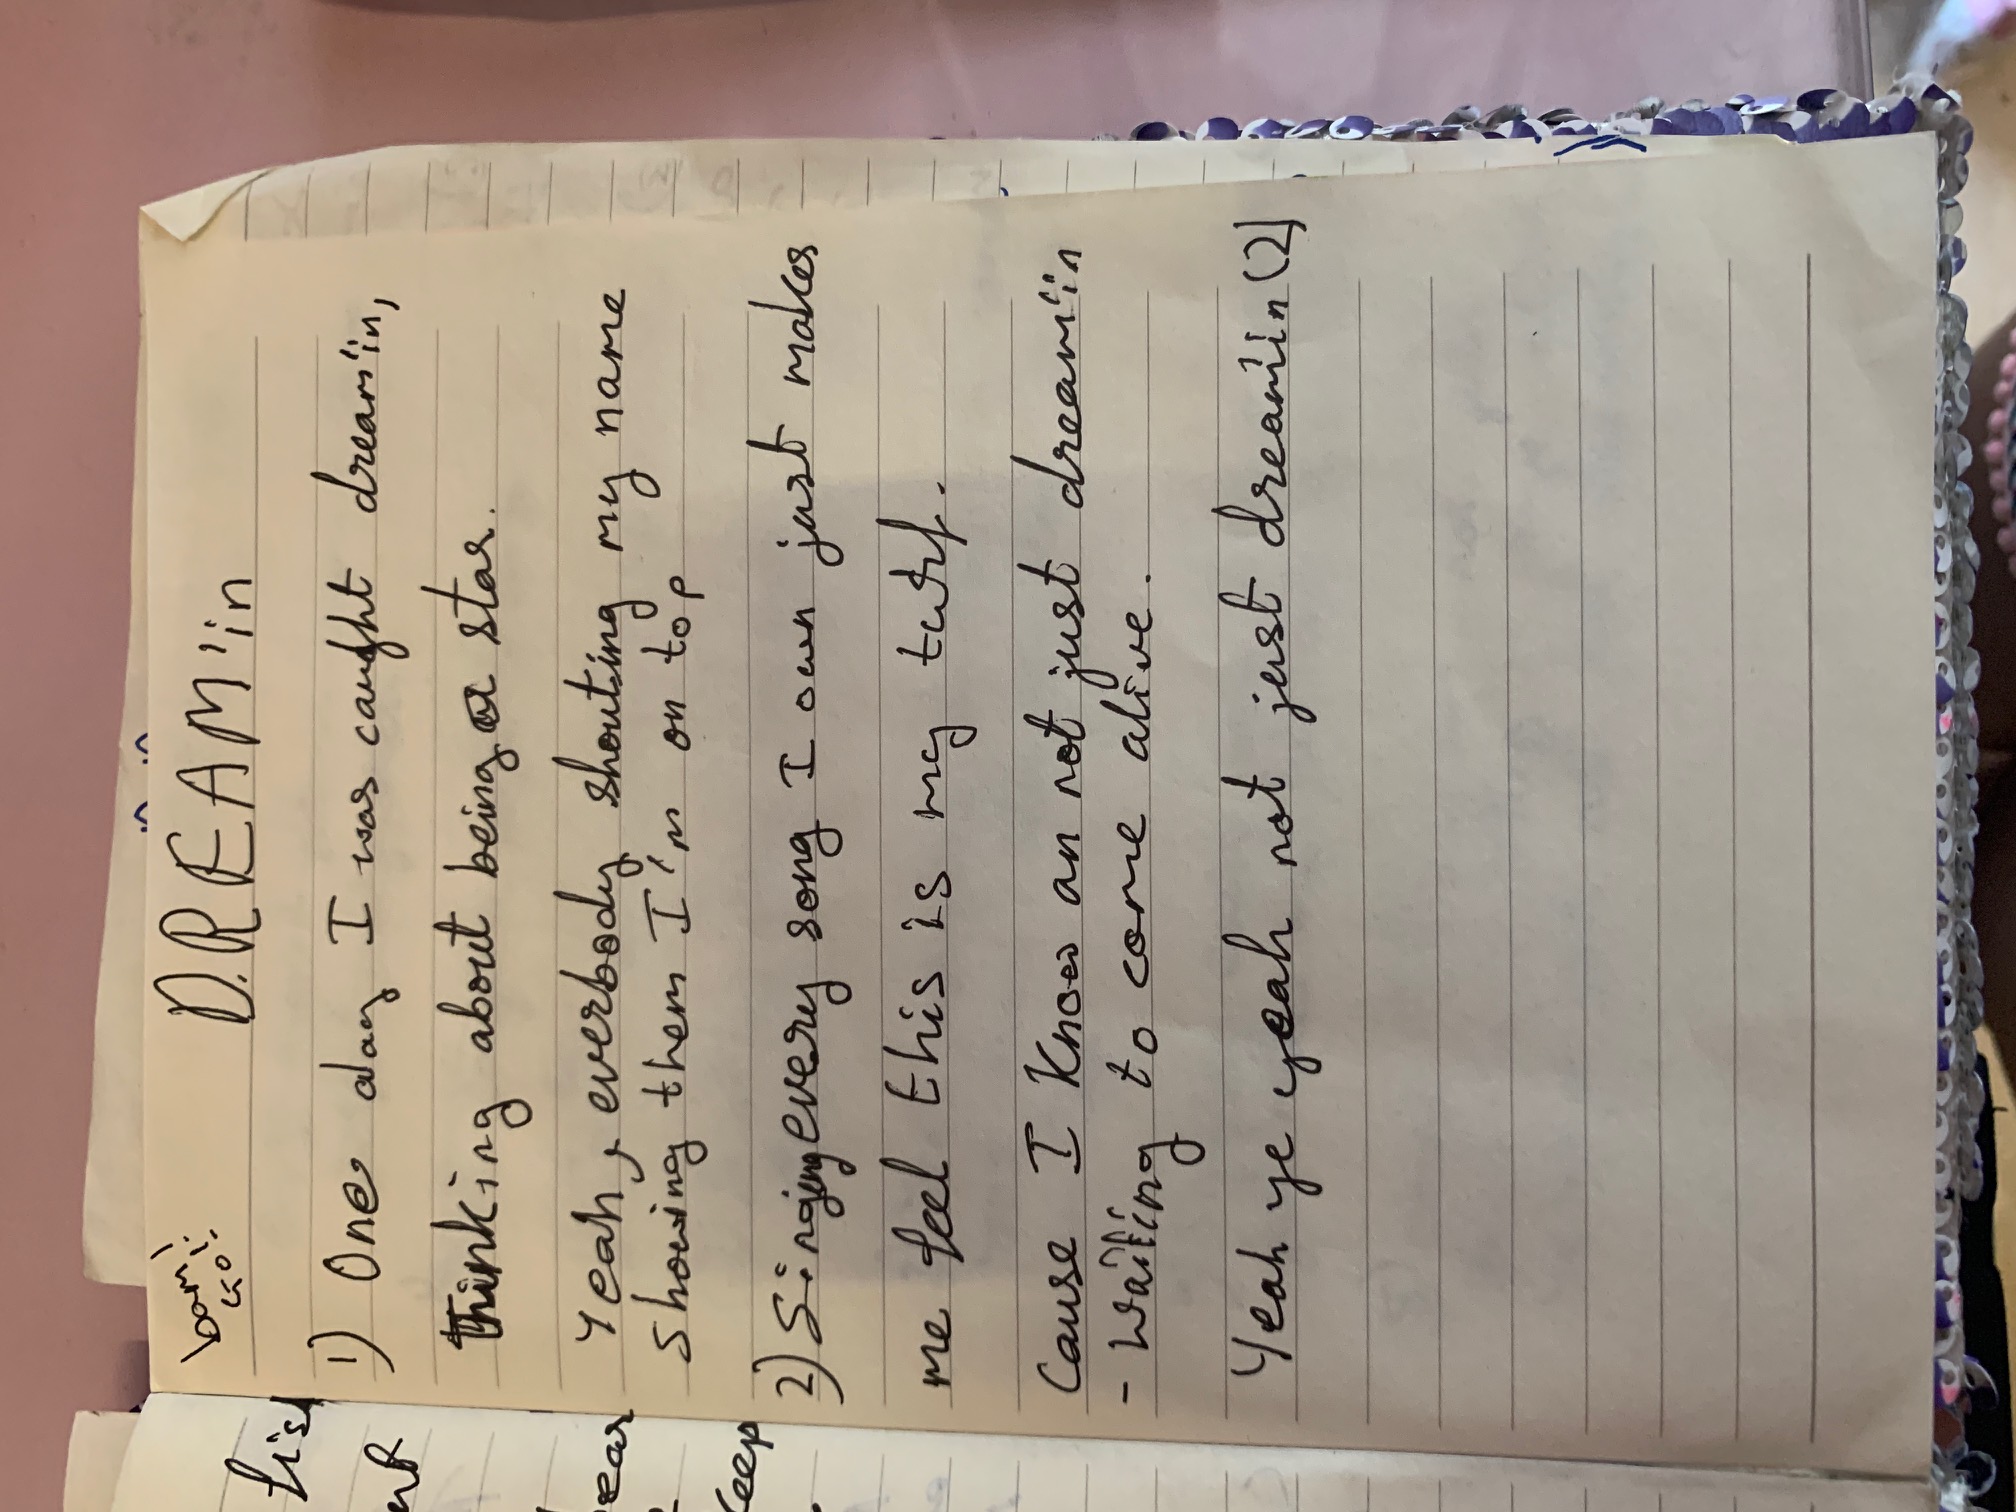 bam!
GO!
D.REAM'in
1) One day I was caught dream'in,
thinking about being a star.
Yeah, everbody shouting my name
showing them I'm on top
2) Singing every song I own just makes
me feel this is my turf.
Cause I know am not just dream'in
- Waiting to come alive.
Yeah ye yeah not just dream'in (2)
ear
keep